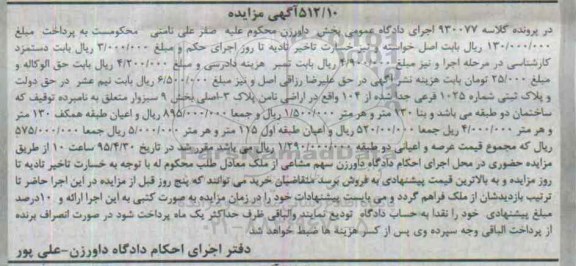 ۵۱۲/۱۰آگهی مزایده
در پرونده کلاسه ۹۳۰۰۷۷ اجرای دادگاه عمومی بخش داورزن محکوم علیه صفر علی نامنی محکومست به پرداخت مبلغ
۱۳۰/۰۰۰/۰۰۰ ریال بابت اصل خواسته و نیز خسارت تاخیر تادیه تا روز اجرای حکم و مبلغ ۳/۰۰۰/۰۰۰ ریال بابت دستمزد
کارشناسی در مرحله اجرا و نیز مبلغ ریال بابت تمبر هزینه دادرسی و مبلغ ۴/۲۰۰/۰۰۰ ریال بابت حق الوکاله و
مبلغ ۲۵/۰۰۰ تومان بابت هزینه نشر آگهی در حق علیرضا رزاقی اصل و نیز مبلغ ۶/۵۰۰/۰۰۰ ریال بابت نیم عشر در حق دولت
و پلاک ثبتی شماره ۱۰۲۵ فرعی جدا شده از ۱۰۴ واقع در اراضی ثامن پلاک ۳-اصلی بخش ۹ سبزوار متعلق به نامبرده توقیف که
ساختمان دو طبقه می باشد و بنا ۹۳۰ متر و هر متر ۱/۵۰۰/۰۰۰ ریال و جمعا ۸۹۵/۰۰۰/۰۰۰ ریال و اعیان طبقه همکف ۱۳۰ متر
و هر متر ۴/۰۰۰/۰۰۰ ریال جمعا ۵۲۰/۰۰/۰۰۰ ریال و اعیان طبقه اول ۱۱۵ متر و هر متر ۵/۰۰۰/۰۰۰ ریال جمعا ۵۷۵/۰۰۰/۰۰۰
ریال که مجموع قیمت عرصه و اعیانی دو طبقه ۱/۲۹۰/۰۰۰/۰۰۰ ریال می باشد مقرر شد در تاریخ ۹۵/۴/۳۰ ساعت ۱۰ از طریق
مزایده حضوری در محل اجرای احکام دادگاه داورزن سهم مشاعی از ملک معادل طلب محکوم له با توجه به خسارت تاخیر تادیه تا
روز مزایده و به بالاترین قیمت پیشنهادی به فروش برسد متقاضیان خرید می توانند که پنج روز قبل از مزایده در این اجرا حاضر تا
ترتیب بازدیدشان از ملک فراهم گردد و می بایست پیشنهادات خود را در زمان مزایده به صورت کتبی به این اجرا ارائه و ۱۰درصد
مبلغ پیشنهادی خود را نقدا به حساب دادگاه تودیع نمایند والباقی ظرف حداکثر یک ماه پرداخت شود در صورت انصراف برنده
از پرداخت الباقی وجه سپرده وی پس از کسر هزینه ها ضبط خواهد شد.
دفتر اجرای احکام دادگاه داورزن-علی پور